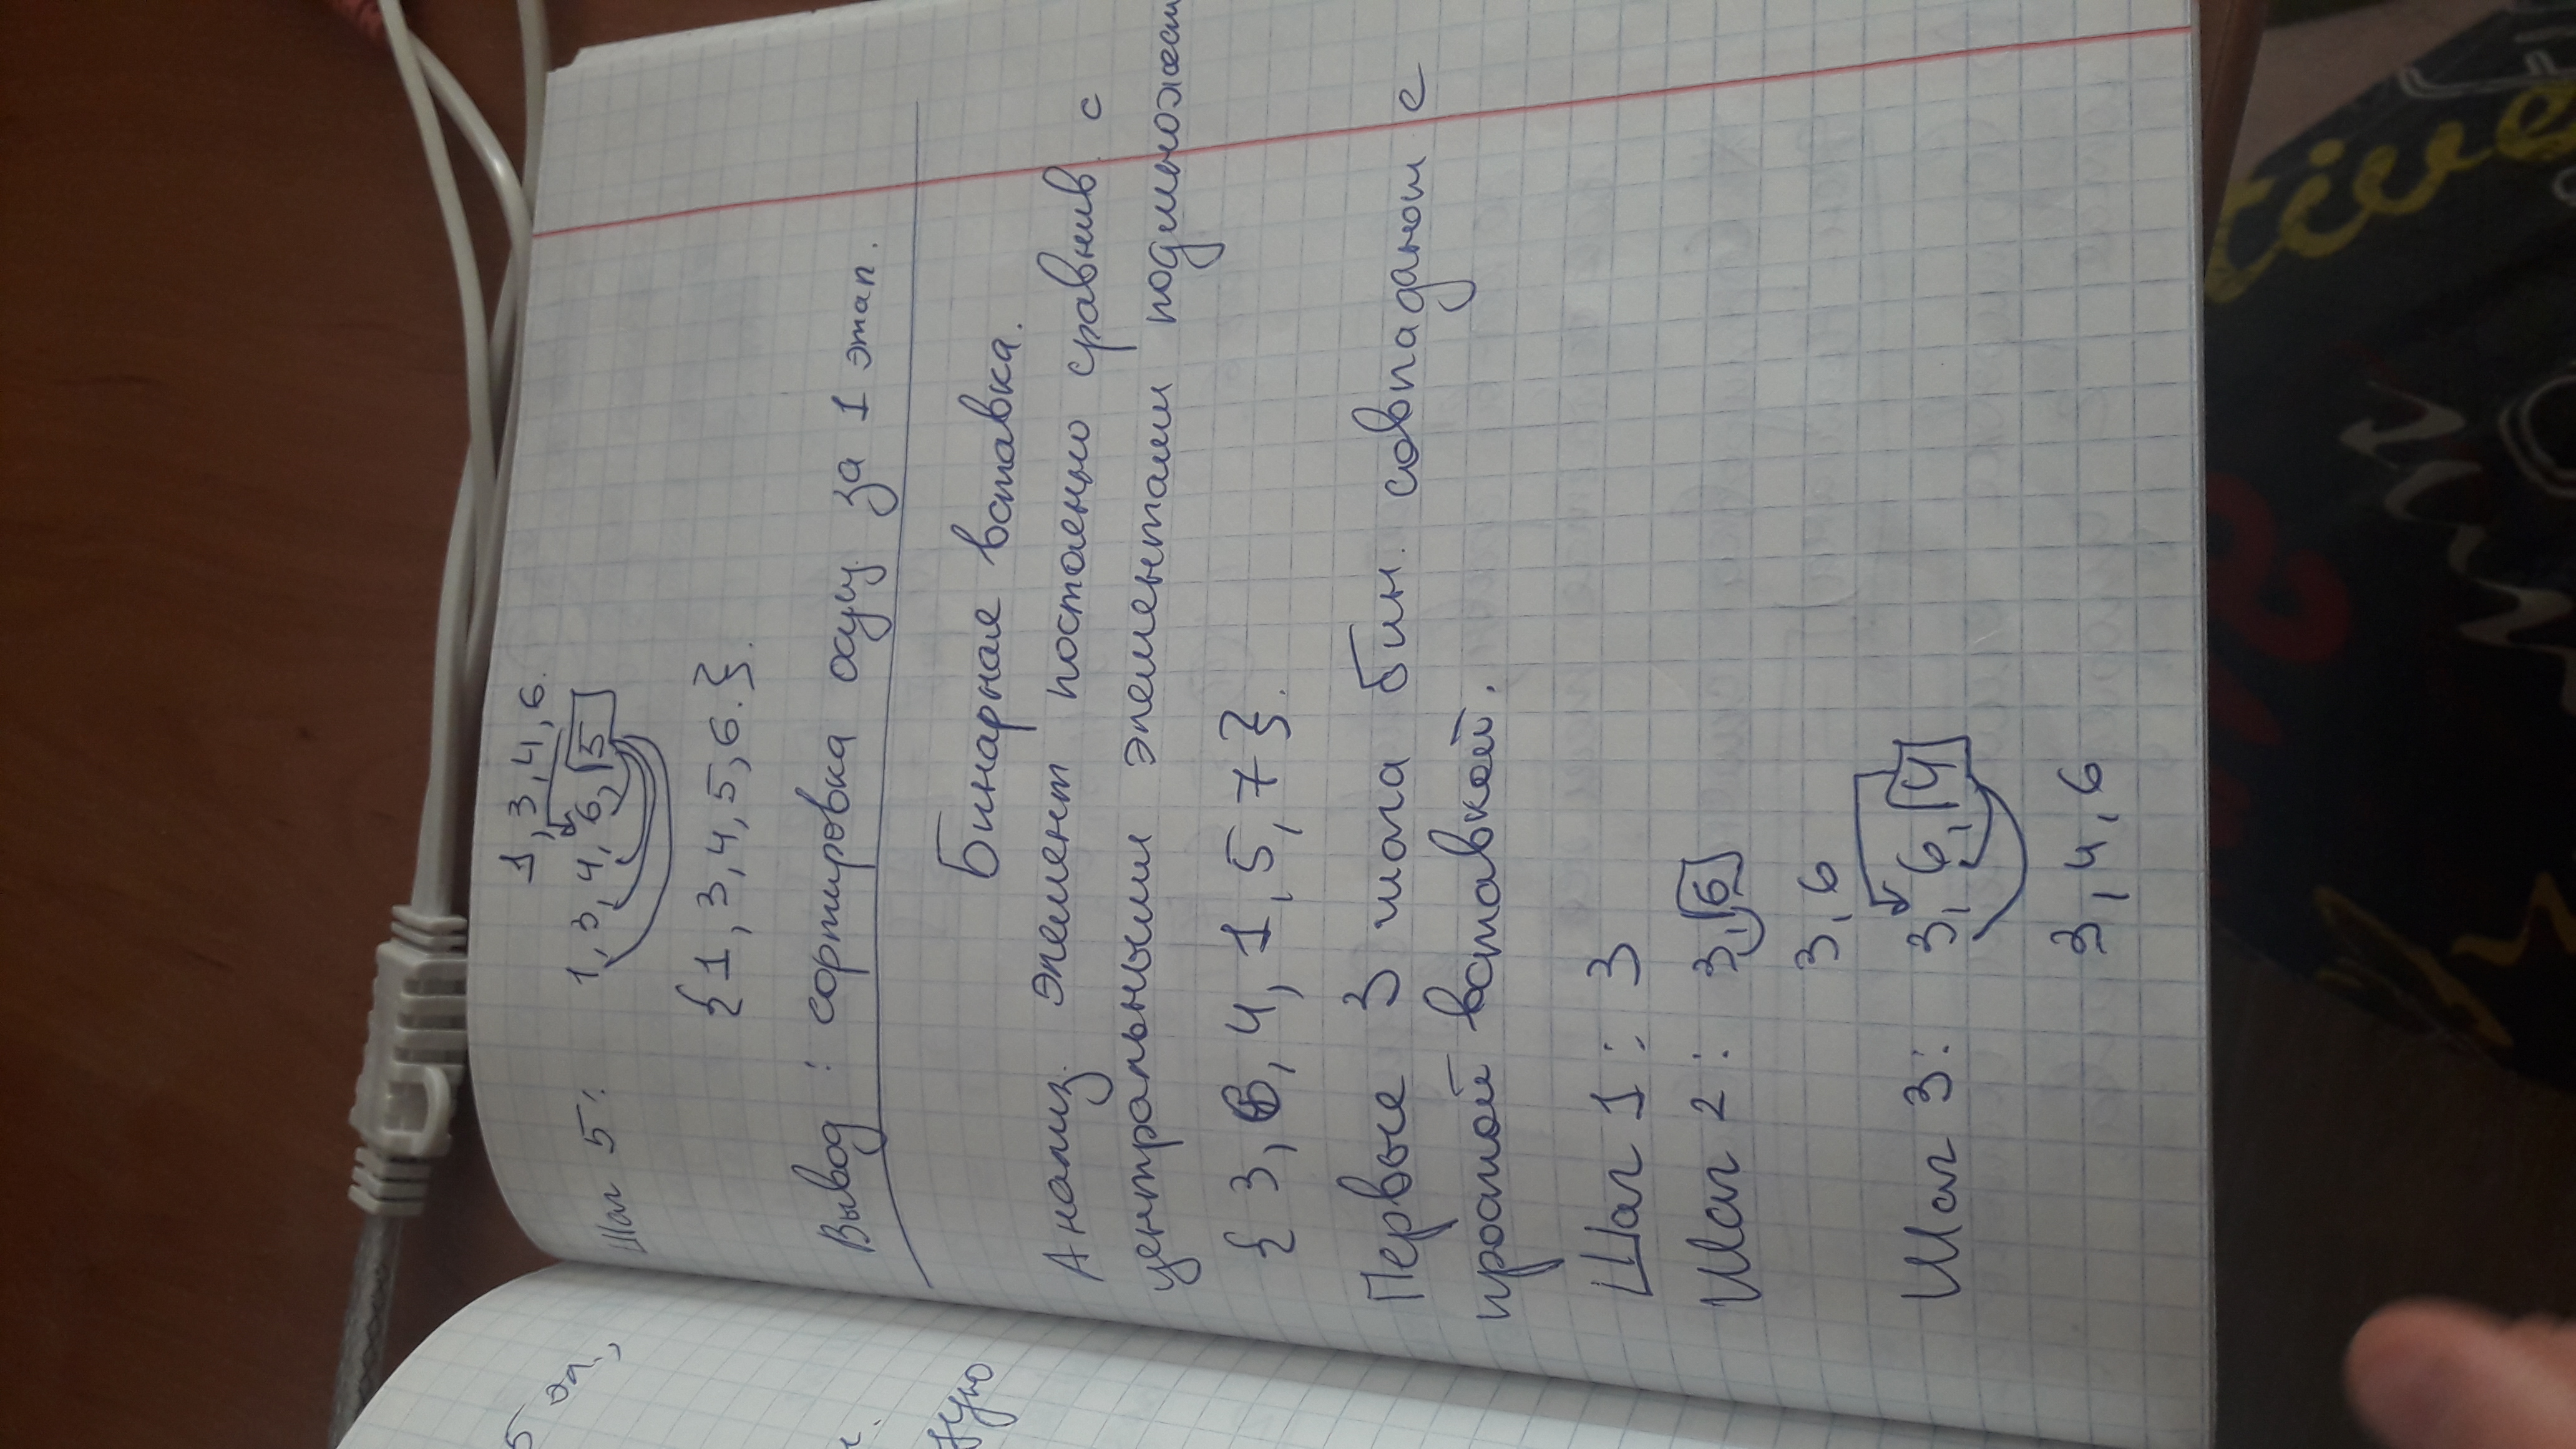 5 эл,
зую
1, 3, 4, 6.
Шаг 5: 1, 3, 4, 6, 5
{1, 3, 4, 5, 6.}.
Вывод: сортировка осущ. за 1 этап.
Бинарная вставка.
Анализ. элемент постоенно сравнив. с
центральными элементами подмножест
{ 3, 6, 4, 1, 5, 7 }.
Первые 3 шага бин. совпадают с
простой вставкой.
Шаг 1: 3
Шаг 2: 3, 6
3, 6
Шаг 3: 3, 6, 4
3, 4, 6